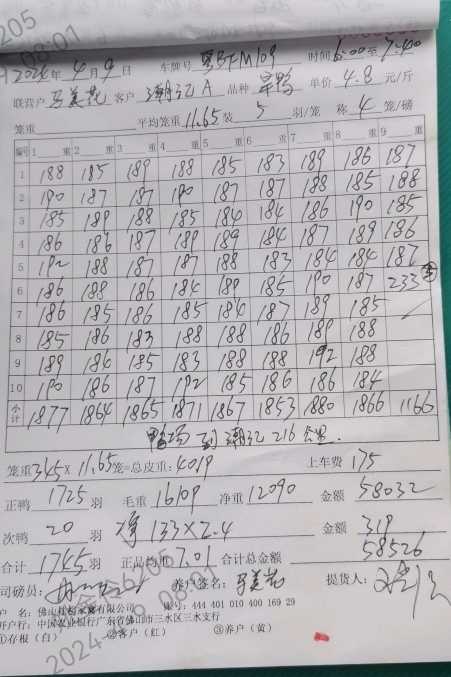 205
08:01
2024年4月9日 车牌号 粤BFM109 时间6:00至7:40
联营户 客户 潮记A 品种 单价 4.8 元/斤
笼重 平均笼重11.65装 5 羽/笼 称 4 笼/磅
编号 1 重 2 重 3 重 4 重 5 重 6 重 7 重 8 重 9 重
1 188 185 189 188 185 183 189 186 187
2 190 187 187 190 187 187 188 185 188
3 185 189 188 185 184 184 186 190 185
4 186 186 187 189 189 184 187 189 186
5 192 188 187 187 188 183 184 184 187
6 186 188 186 184 189 185 190 187 233
7 186 185 186 185 184 187 189 185
8 185 186 183 188 188 186 189 188
9 189 186 185 183 188 188 192 188
10 190 186 187 192 185 186 186 184
小计 1877 1864 1865 1871 1867 1853 1880 1866 1166
鸭场到潮记216公里.
笼重345×11.65笼=总皮重:4019 上车费 175
正鸭 1725 羽 毛重 16109 净重 12090 金额 58032
次鸭 20 羽 净 133×2.4 金额 319
合计 1745 羽 正品均重 7.01 合计总金额 58526
司磅员: 养户签名: 提货人:
账号: 444 401 010 400 169 29
开户行: 中国农业银行广东省佛山市三水区三水支行
①存根(白) ②客户(红) ③养户(黄)